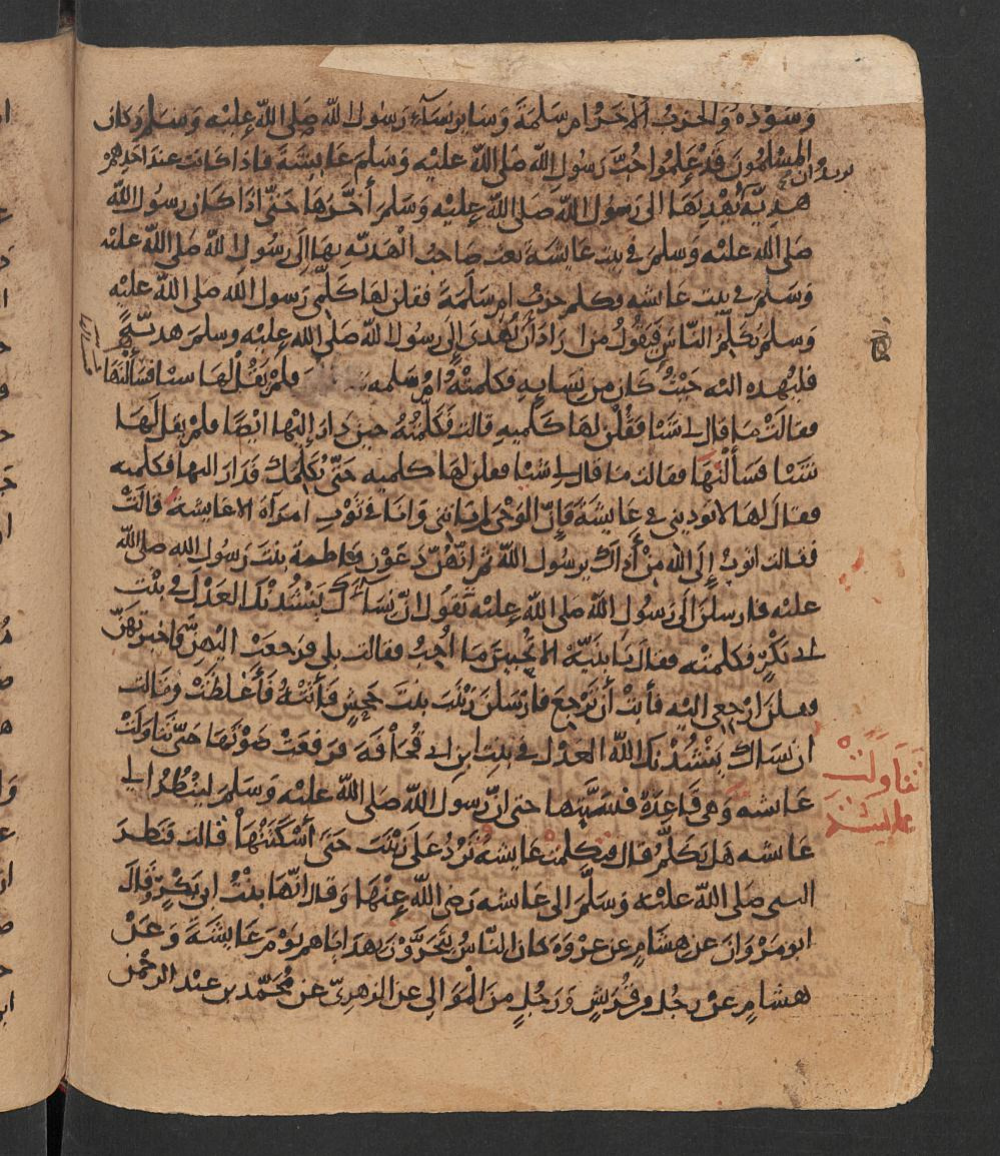 وسودة والحزب الآخر ام سلمة وسائر نساء رسول الله صلى الله عليه وسلم وكان
المسلمون قد علموا حب رسول الله صلى الله عليه وسلم عايشة فاذا كانت عند احدهم
يريد ان
هدية يهديها الى رسول الله صلى الله عليه وسلم أخرها حتى اذا كان رسول الله
صلى الله عليه وسلم في بيت عايشة بعث صاحب الهدية بها الى رسول الله صلى الله عليه
وسلم في بيت عايشه فكلم حزب ام سلمة فقلن لها كلمي رسول الله صلى الله عليه
وسلم يكلم الناس فيقول من اراد أن يهدي إلى رسول الله صلى الله عليه وسلم هدية
فليهده اليه حيث كان من نسايه فكلمته ام سلمه فلم يقل لها شيا فسألنها
فقالت ما قال لي شيا فقلن لها كلميه قالت فكلمته حين دار إليها ايضا فلم يقل لها
شيا فسألنها فقالت ما قال لي شيا فقلن لها كلميه حتى يكلمك فدار اليها فكلمته
فقال لها لا توذيني في عايشة فإن الوحي لم ياتني وانا في ثوب امرأة الا عايشة قالت
فقالت اتوب إلى الله من أذاك يرسول الله ثم انهن دعون فاطمة بنت رسول الله صلى الله
عليه فارسلن الى رسول الله صلى الله عليه تقول ان نساءك ينشدنك العدل في بنت
ابي بكر فكلمته فقال يا بنية الا تحبين ما احب فقالت بلى فرجعت اليهن فاخبرتهن
فقلن ارجعي اليه فأبت أن ترجع فارسلن زينب بنت جحش فأتته فأغلظت وقالت
ان نساك ينشدنك الله العدل في بنت ابن ابي قحافة فرفعت صوتها حتى تناولت
تناولت
عايشة
عايشه وهي قاعدة فسبتها حتى ان رسول الله صلى الله عليه وسلم لينظر الى
عايشه هل تكلم قال فتكلمت عايشة ترد على زينب حتى أسكتتها قالت فنظر
النبي صلى الله عليه وسلم الى عايشه رضي الله عنها وقال انها بنت ابي بكر وقال
ابو مروان عن هشام عن عروة كان الناس يتحرون بهداياهم يوم عايشة وعن
هشام عن رجل من قريش ورجل من الموالي عن الزهري عن محمد بن عبد الرحمن